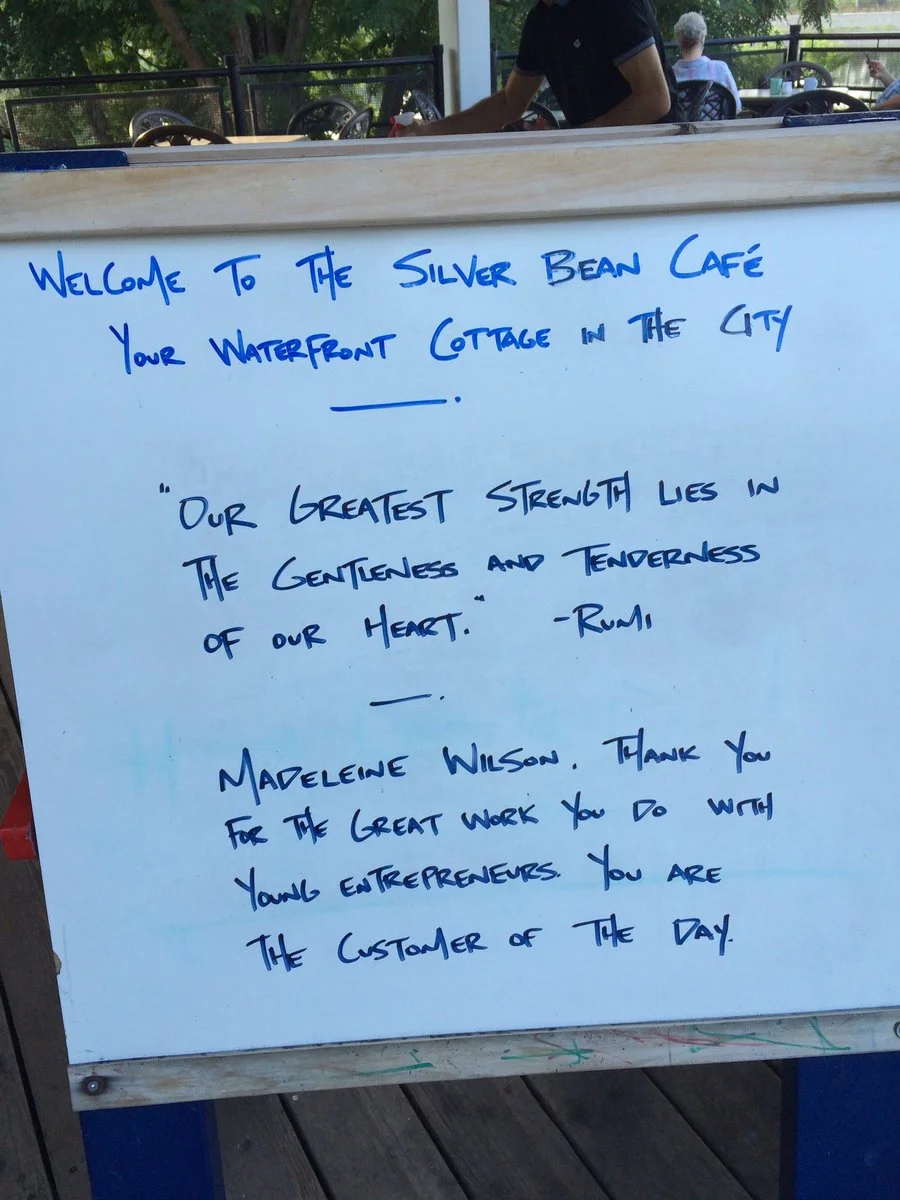 WELCOME TO THE SILVER BEAN CAFÉ
YOUR WATERFRONT COTTAGE IN THE CITY
"OUR GREATEST STRENGTH LIES IN
THE GENTLENESS AND TENDERNESS
OF OUR HEART." -RUMI
MADELEINE WILSON. THANK YOU
FOR THE GREAT WORK YOU DO WITH
YOUNG ENTREPRENEURS. YOU ARE
THE CUSTOMER OF THE DAY.